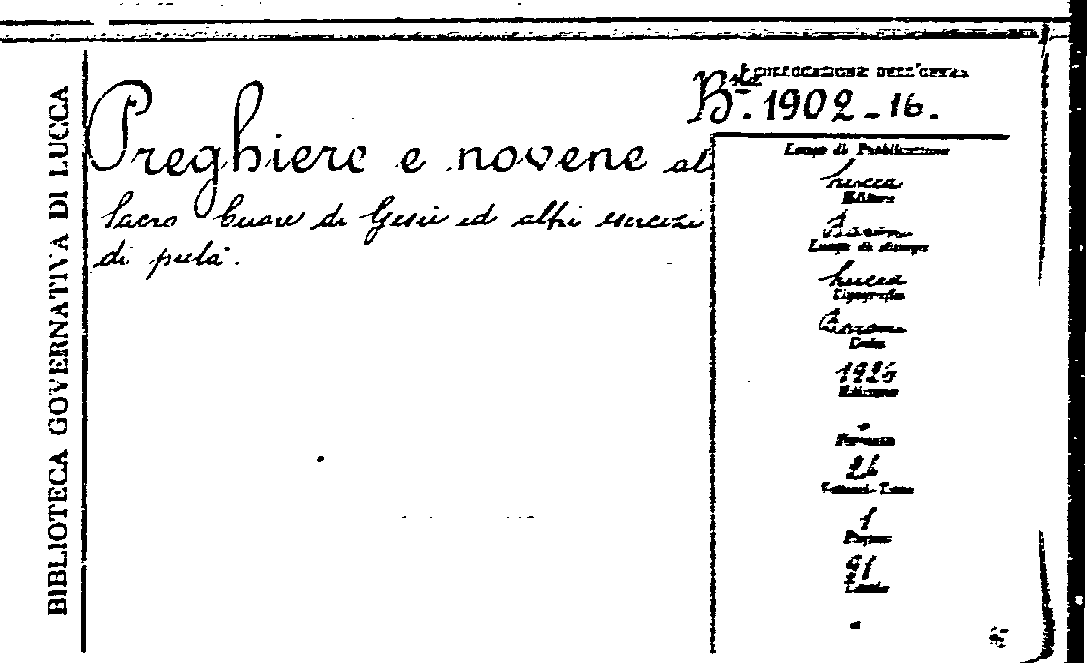 BIBLIOTECA GOVERNATIVA DI LUCCA
COLLOCAZIONE DELL'OPERA
B.ta 1902-16.
Preghiere e novene al
Sacro Cuore di Gesù ed altri esercizi
di pietà.
Luogo di Pubblicazione
Lucca
Editore
Baroni
Luogo di stampa
Lucca
Tipografia
Baroni
Data
1926
Edizione
-
Formato
Volumi-Tomo
1
Pagine
91